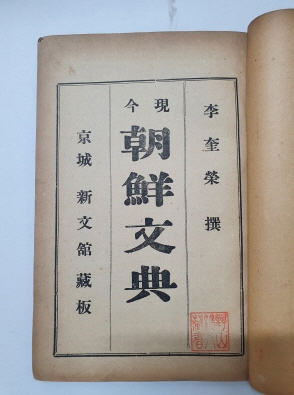 李奎榮 撰
現今
朝鮮文典
京城 新文館藏板